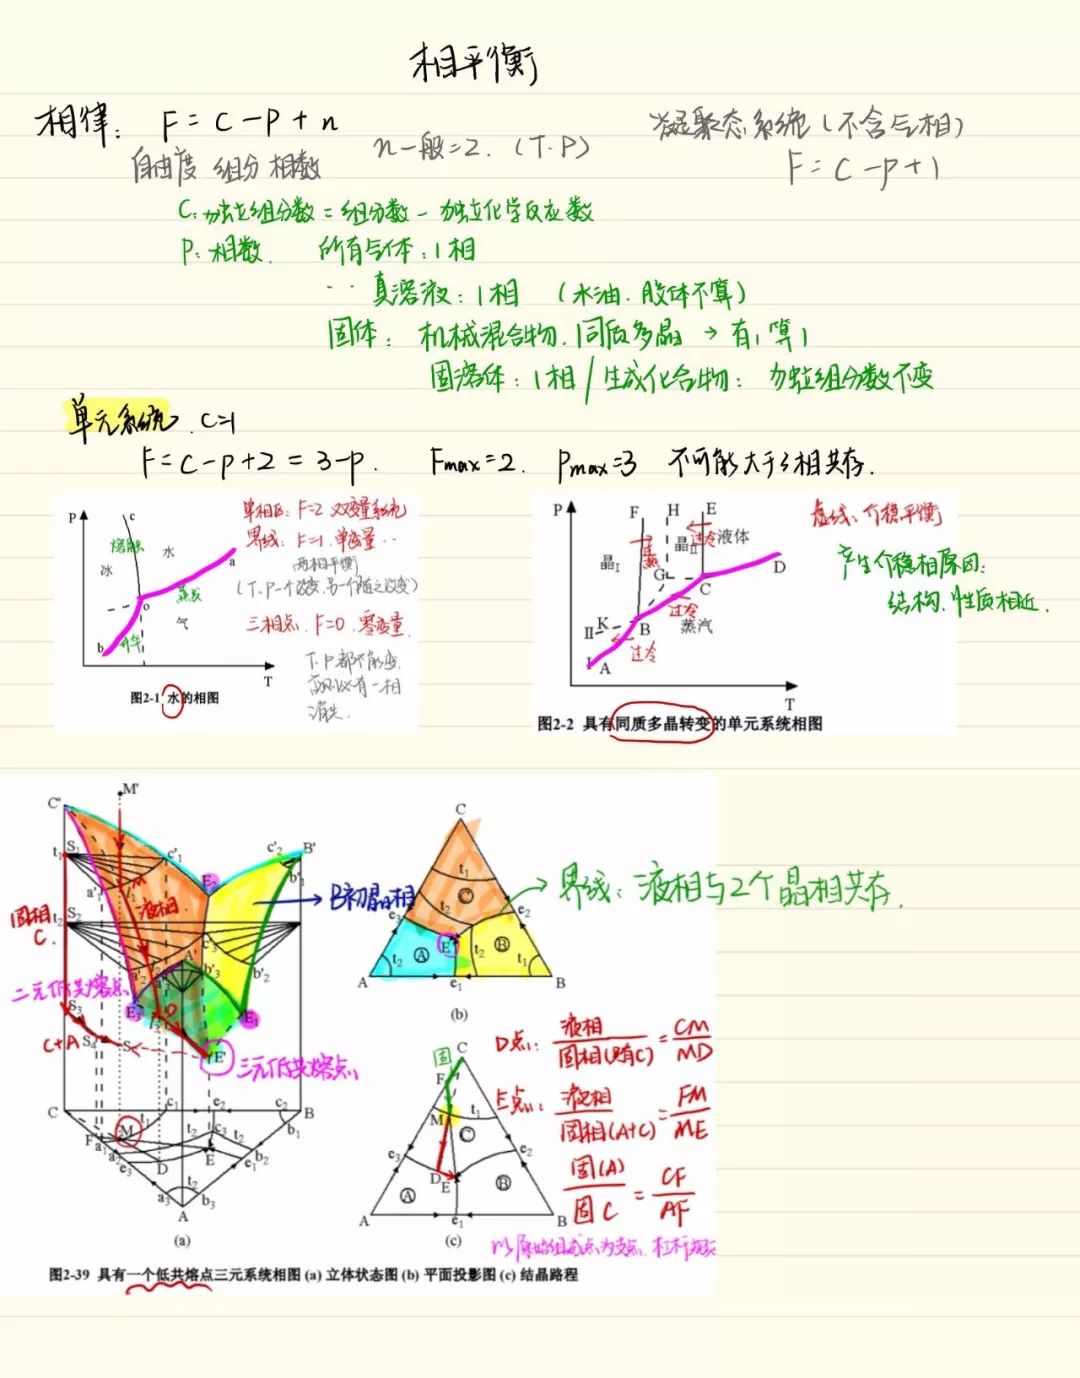 相平衡
相律: F=C-P+n
自由度 组分 相数
n一般=2. (T.P)
凝聚态系统(不含气相)
F=C-P+1
C: 独立组分数=组分数-独立化学反应数
P: 相数. 所有气体:1相
真溶液:1相 (水油.胶体不算)
固体: 机械混合物.同质多晶→有1算1
固溶体:1相/生成化合物: 独立组分数不变
单元系统. C=1
F=C-P+2=3-P. Fmax=2. Pmax=3 不可能大于3相共存.
P
c
熔融
水
冰
a
o
蒸发
气
b
升华
T
图2-1 水的相图
单相区: F=2 双变量系统
界线: F=1. 单变量..
两相平衡
(T、P一个改变.另一个随之改变)
三相点. F=0. 零变量.
T.P都不能变.
否则必有一相
消失.
P
F H E
晶I
晶II
过热
过冷
液体
G
C
D
过冷
K
II
B
蒸汽
I
A
过冷
T
图2-2 具有同质多晶转变的单元系统相图
虚线: 介稳平衡
产生介稳相原因:
结构.性质相近.
M'
C'
t1
S1
c'1
c'2
B'
b'1
a'1
E2
液相
固相
C.
t2
S2
c'3
A'
a'2
a'3
b'3
b'2
二元低共熔点
E3
D'
E1
S3
C+A
S4
S
E'
三元低共熔点
C
c1
e2
c2
B
t1
F
M
a1
a2
e3
t2
c3
t2
b1
D
E
e1
b2
a3
t2
b3
A
(a)
B初晶相
C
t1
C
e3
t2
e2
E'
t2
A
t2
B
t1
A
e1
B
(b)
界线: 液相与2个晶相共存.
固
C
F
M
t1
C
e3
e2
D
E
A
B
A
e1
B
(c)
D点: 液相/固相(只有C) = CM/MD
E点: 液相/固相(A+C) = FM/ME
固(A)/固C = CF/AF
以原始组成点为支点.杠杆规则
图2-39 具有一个低共熔点三元系统相图 (a) 立体状态图 (b) 平面投影图 (c) 结晶路程